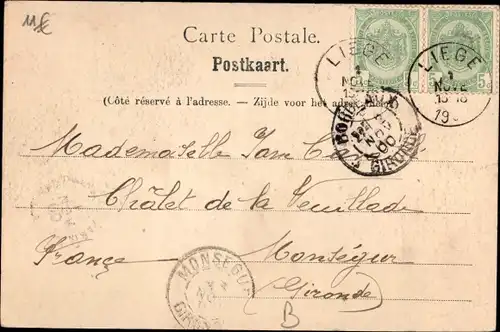 11€
Carte Postale.
Postkaart.
(Côté réservé à l'adresse. — Zijde voor het adres
LIEGE
NOVE
LIEGE
NOVE
19
BORDEAUX
NOV
00
GIRONDE
Mademoiselle
Châlet de la Feuillade
France. Monségur
Gironde
MONSEGUR
B